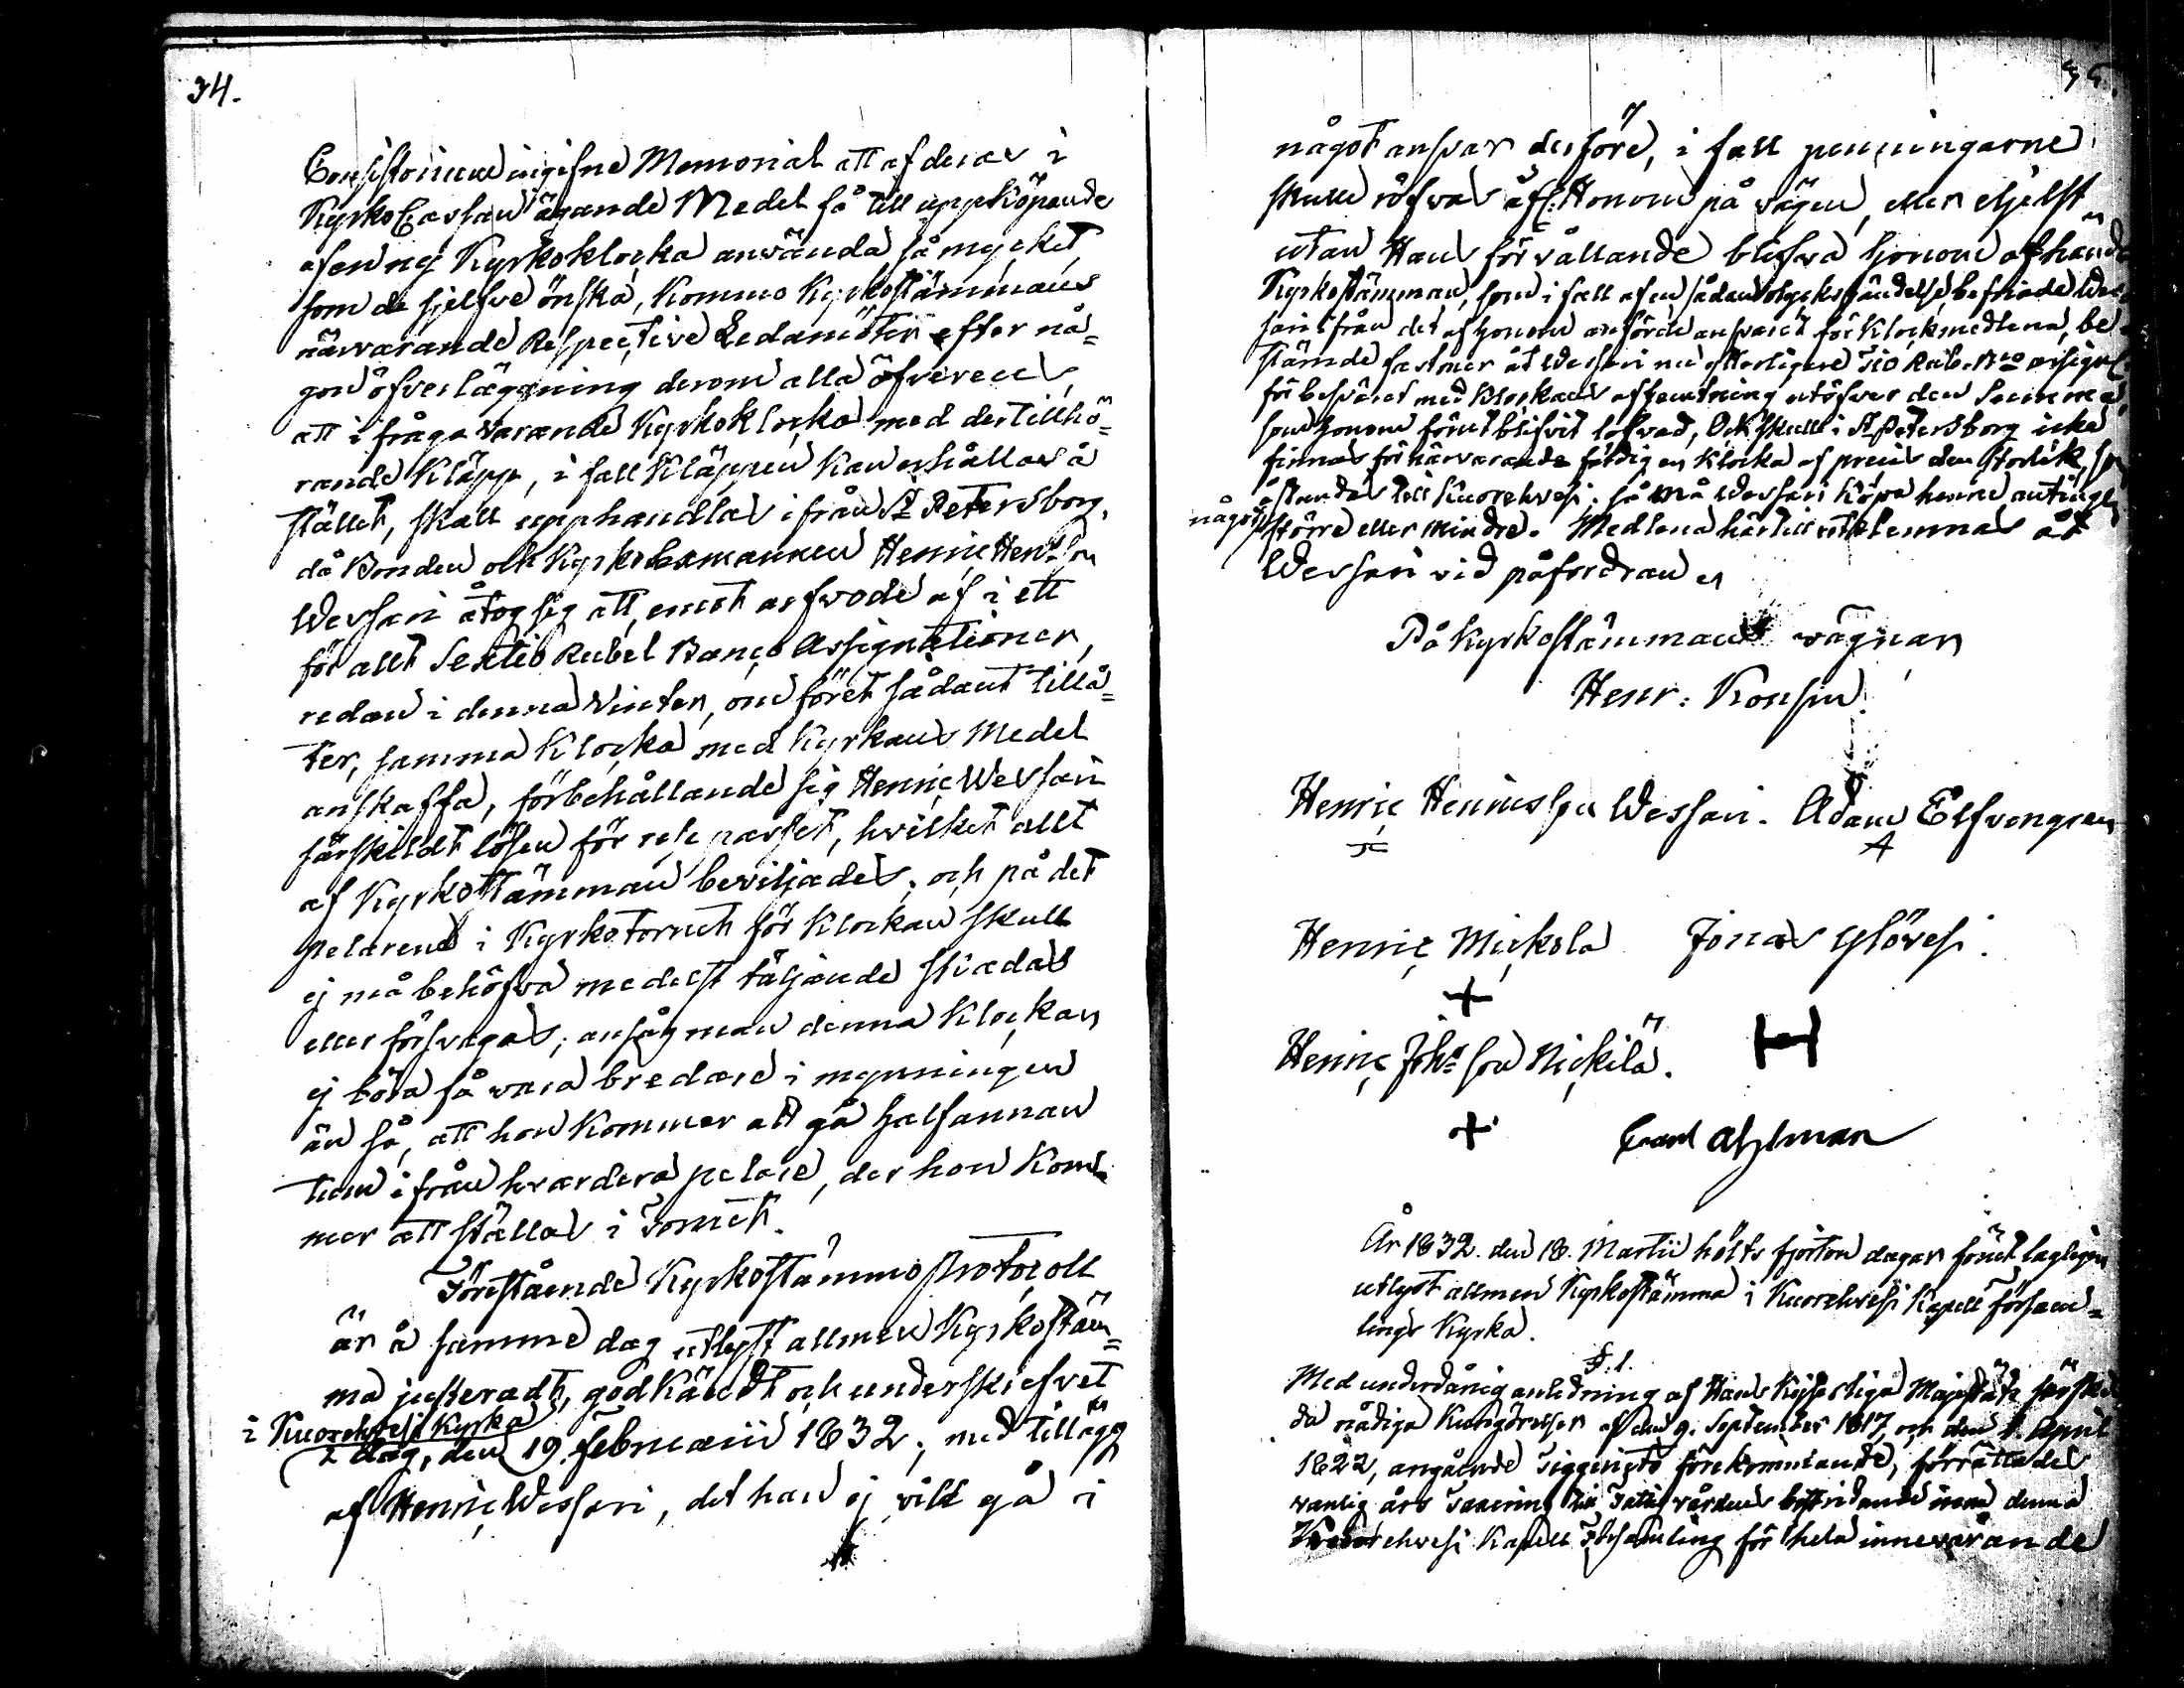 34.
Consistorium ingifne Memorial att af deras i
Kyrko Cassan ägande Medel få till uppköpande
af en ny Kyrkoklocka använda så mycket,
som de sjelfve önska, kommo Kyrkostämmans
närvarande Respective Ledamöter efter nå=
gon öfverläggning derom alla öfverens,
att i fråga varande Kyrkoklocka med dertillhö=
rande Kläpp, i fall Kläppen kan erhållas å
stället, skall upphandlas ifrån St Petersborg,
då Bonden och Kyrkovärmannen Henric Henr:son
Wessari åtog sig att, emot arfvode af i ett
för allt Sextio Rubel Banco Assignationer,
redan i denna Vinter, om föret sådant tillå=
ter, samma Klocka med Kyrkans Medel
anskaffa, förbehållande sig Henric Wessari
särskildt lösen för respasset, hvilket allt
af Kyrkostämman beviljades; och på det
pelarene i Kyrkotornet för Klockan skull
ej må behöfva medelst täljande skadas
eller försvagas, ansåg man denna Klockan
ej böra få vara bredare i mynningen
än så, att hon kommer att gå half annan
tum ifrån hvardera pelare, der hon kom=
mer att ställas i Tornet.
Förestående Kyrkostämmo Protocoll
är å samma dag utlyst allmen Kyrkostäm=
ma justeradt, godkändt och underskrifvet
i Kuorehvesi Kyrka
i dag, den 19 Februarii 1832; med tillägg
af Henric Wessari, det han ej vill gå i
35.
något ansvar derföre, i fall penningarne
skulle röfvas af Honom på vägen, eller eljest
utan Hans förvållande blifva honom afhände
Kyrkostämman, som i fall af en sådan olyckshändelse befriade Wes=
sari från det af honom anförde ansvaret för Klockmedlena, be=
stämde härtoner åt Wessari nu ytterligare Tio Rub. Bco Assign:
för besväret med Klockans afhemtning utöfver den Summa,
som honom förut blifvit lofvad, Och skulle i St Petersborg icke
finnas för närvarande färdig en Klocka af precis den storlek, som
åstundas till Kuorehvesi; så må Wessari köpa henne antingen
något större eller mindre. Medlena härtill utlemnas åt
Wessari vid påfordran.
På Kyrkostämmans vägnar
Henr: Konsin.
Henric Henricsson Wessari. Adam Elfvengren
A
Henric Mickola Jonas Ylövesi.
+
Henric Joh:son Nickilä. H
+ Carl Ahlman
År 1832. den 18. Martii hölts fjorton dagar förut lagligen
utlyst allmen Kyrkostämma i Kuorehvesi Kapell Försam=
lings Kyrka.
§. 1.
Med underdånig anledning af Hans Kejserliga Majestäts särskil
da nådiga Kungörelser af den 9. September 1817, och den 1. April
1822, angående Tiggeriets förekommande, förrättades
vanlig års Taxering till Fattigvårdens bestridande inom denna
Kuorehvesi Kapell Församling för hela innevarande